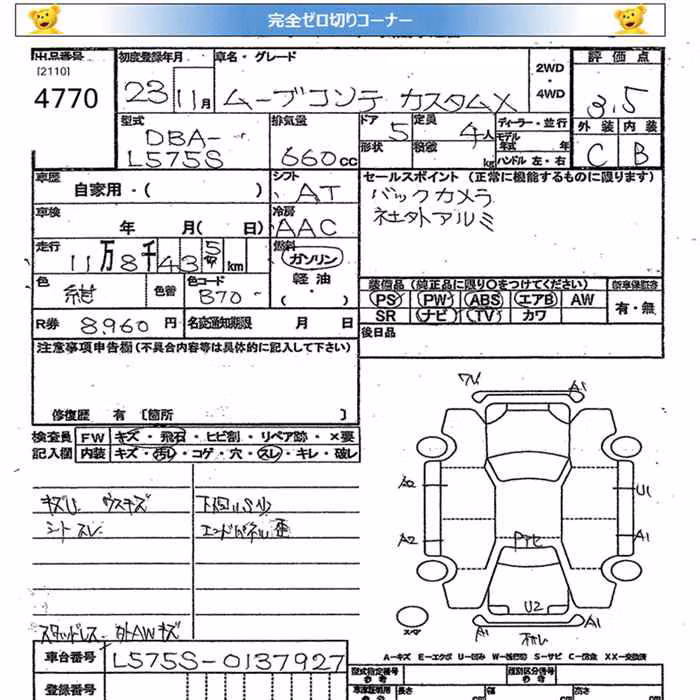 完全ゼロ切りコーナー
出品番号 初度登録年月 車名・グレード 2WD・4WD 評価点
[2110]
4770
23 11月 ムーブコンテ カスタムX 3.5
型式 排気量 ドア 定員 ディーラー・並行 外装 内装
DBA-L575S 660cc 5 4人 モデル年式 年 C B
形状 積載 kg ハンドル 左・右
車歴 シフト セールスポイント (正常に機能するものに限ります)
自家用・( ) AT バックカメラ
車検 冷房 社外アルミ
年 月( 日) AAC
走行 燃料
11万8千435km ガソリン
色 色替 色コード 軽油・( )
紺 B70- 装備品(純品に限り○をつけてください) 新車保証書
PS PW ABS エアB AW 有・無
R券 8960円 名変通知期限 月 日 SR ナビ TV カワ
注意事項申告欄(不具合内容等は具体的に記入して下さい) 後日品
修復歴 有 [箇所 ]
検査員 FW キズ・飛石・ヒビ割・リペア跡・×要
記入欄 内装 キズ・汚レ・コゲ・穴・スレ・キレ・破レ
キズU ウスキズ 下回りSタ
シートスレ エンドパネル歪
A1
A2 U1
A2 A1
U2
A1 A1
スタッドレス 外AWキズ
車台番号 L575S-0137927
A-キズ E-エクボ U-凹ミ W-波(板)ミ S-サビ C-腐食 XX-交換済
登録番号 型式指定番号 類別区分番号
参考 参考
長さ cm 幅 cm 高さ cm